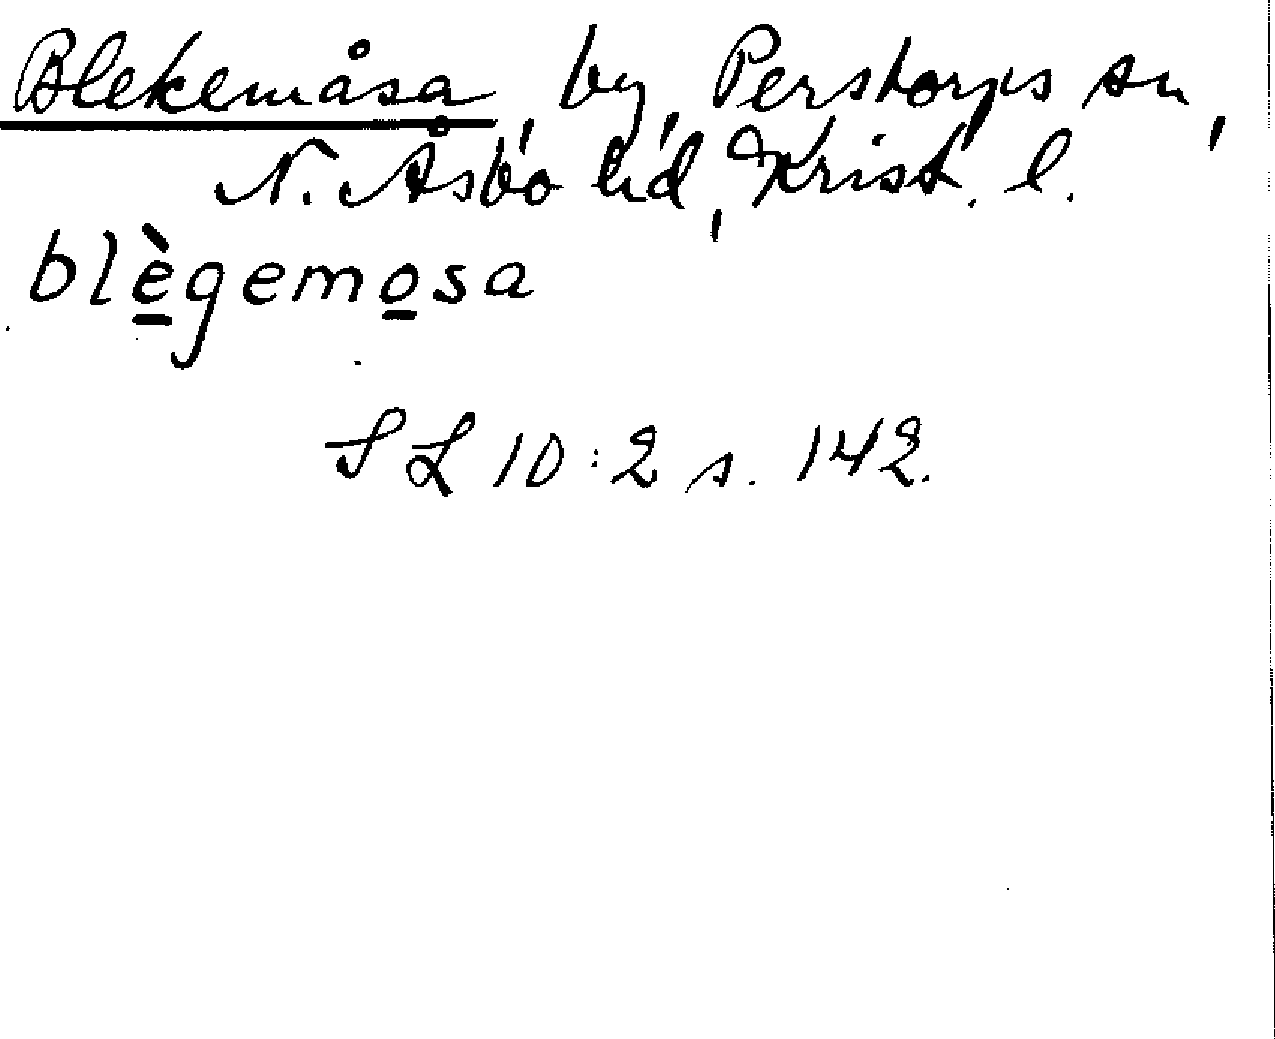 Blekemåsa, by, Perstorps sn,
N. Åsbo hd, Krist. l.
blègemosa
SL 10:2 s. 142.